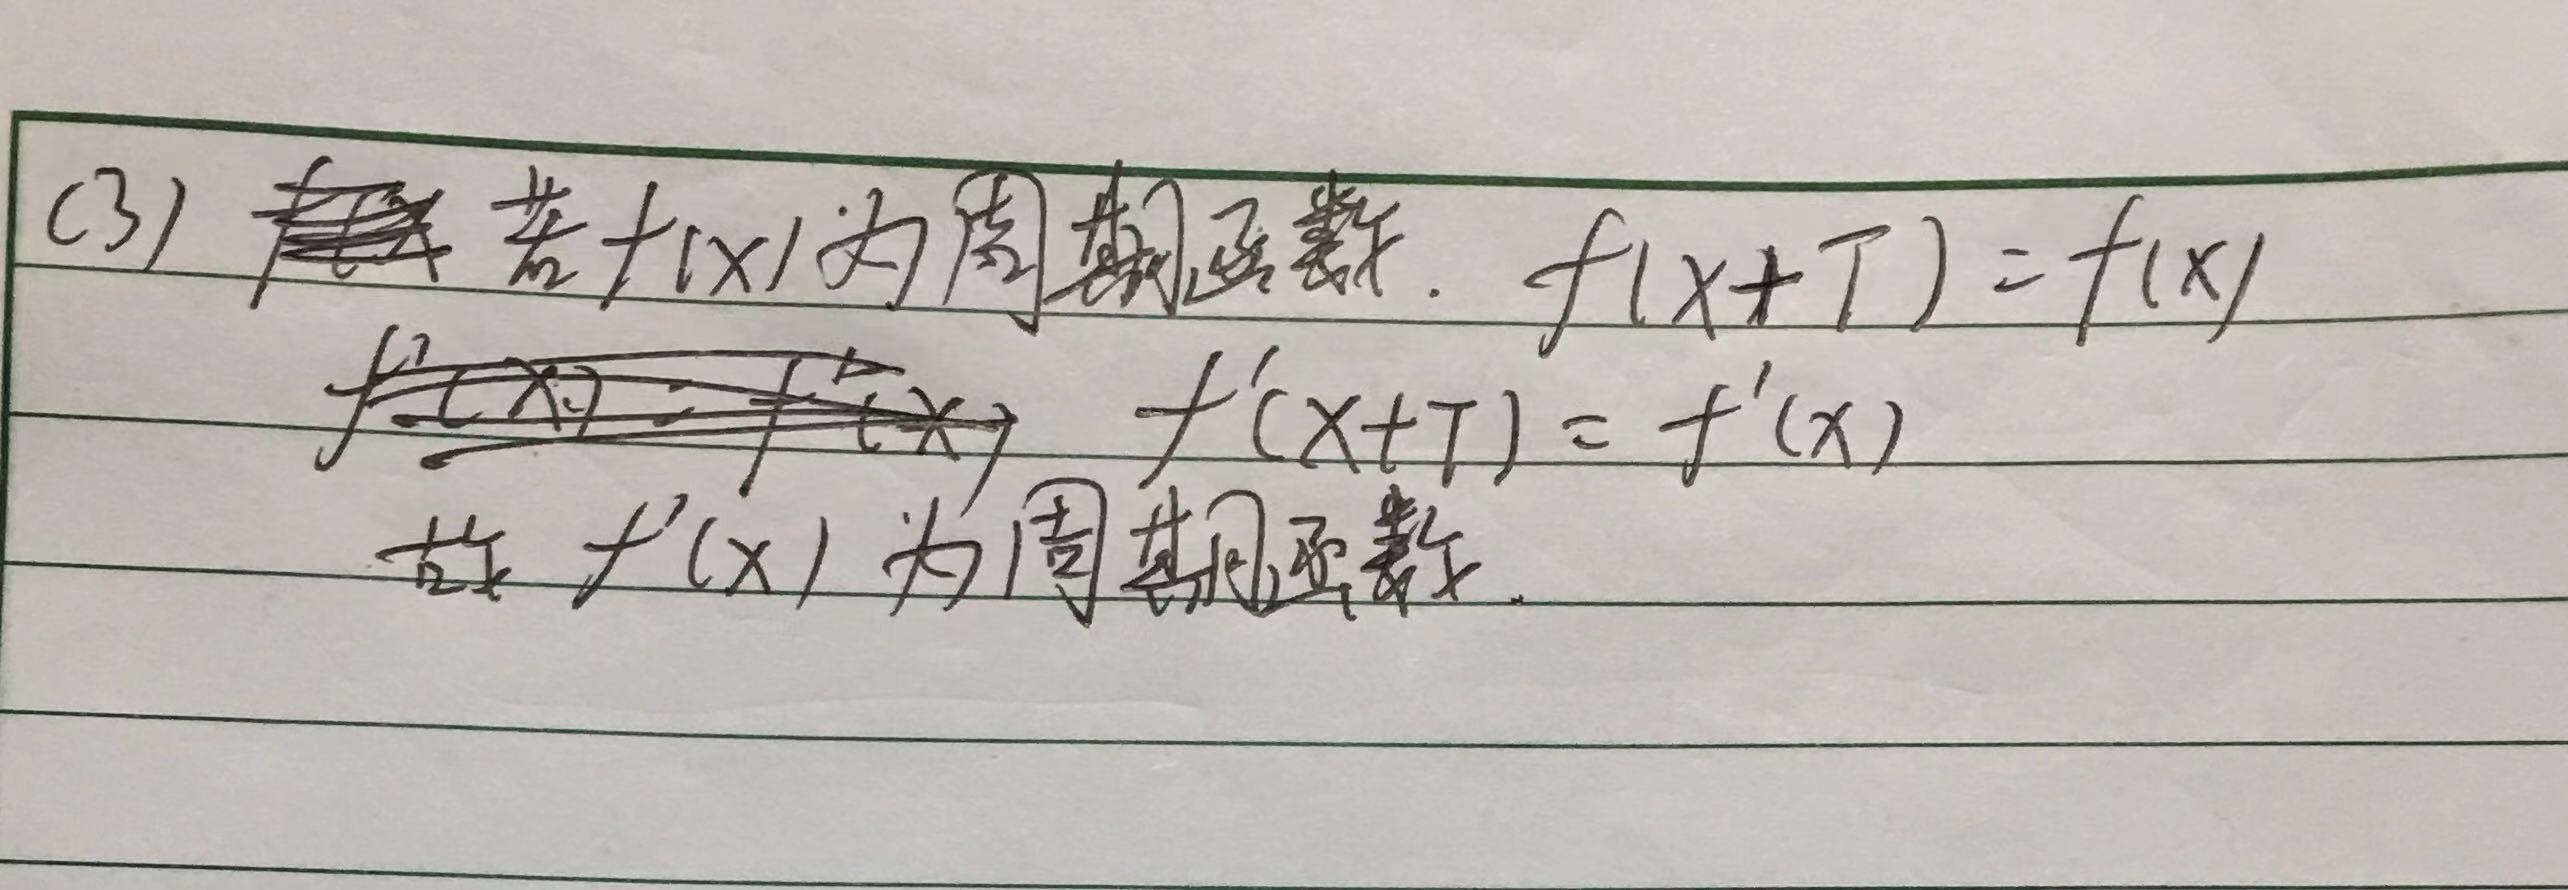 (3) 若f(x)为周期函数. f(x+T)=f(x)
f'(x+T)=f'(x)
故 f'(x) 为周期函数.